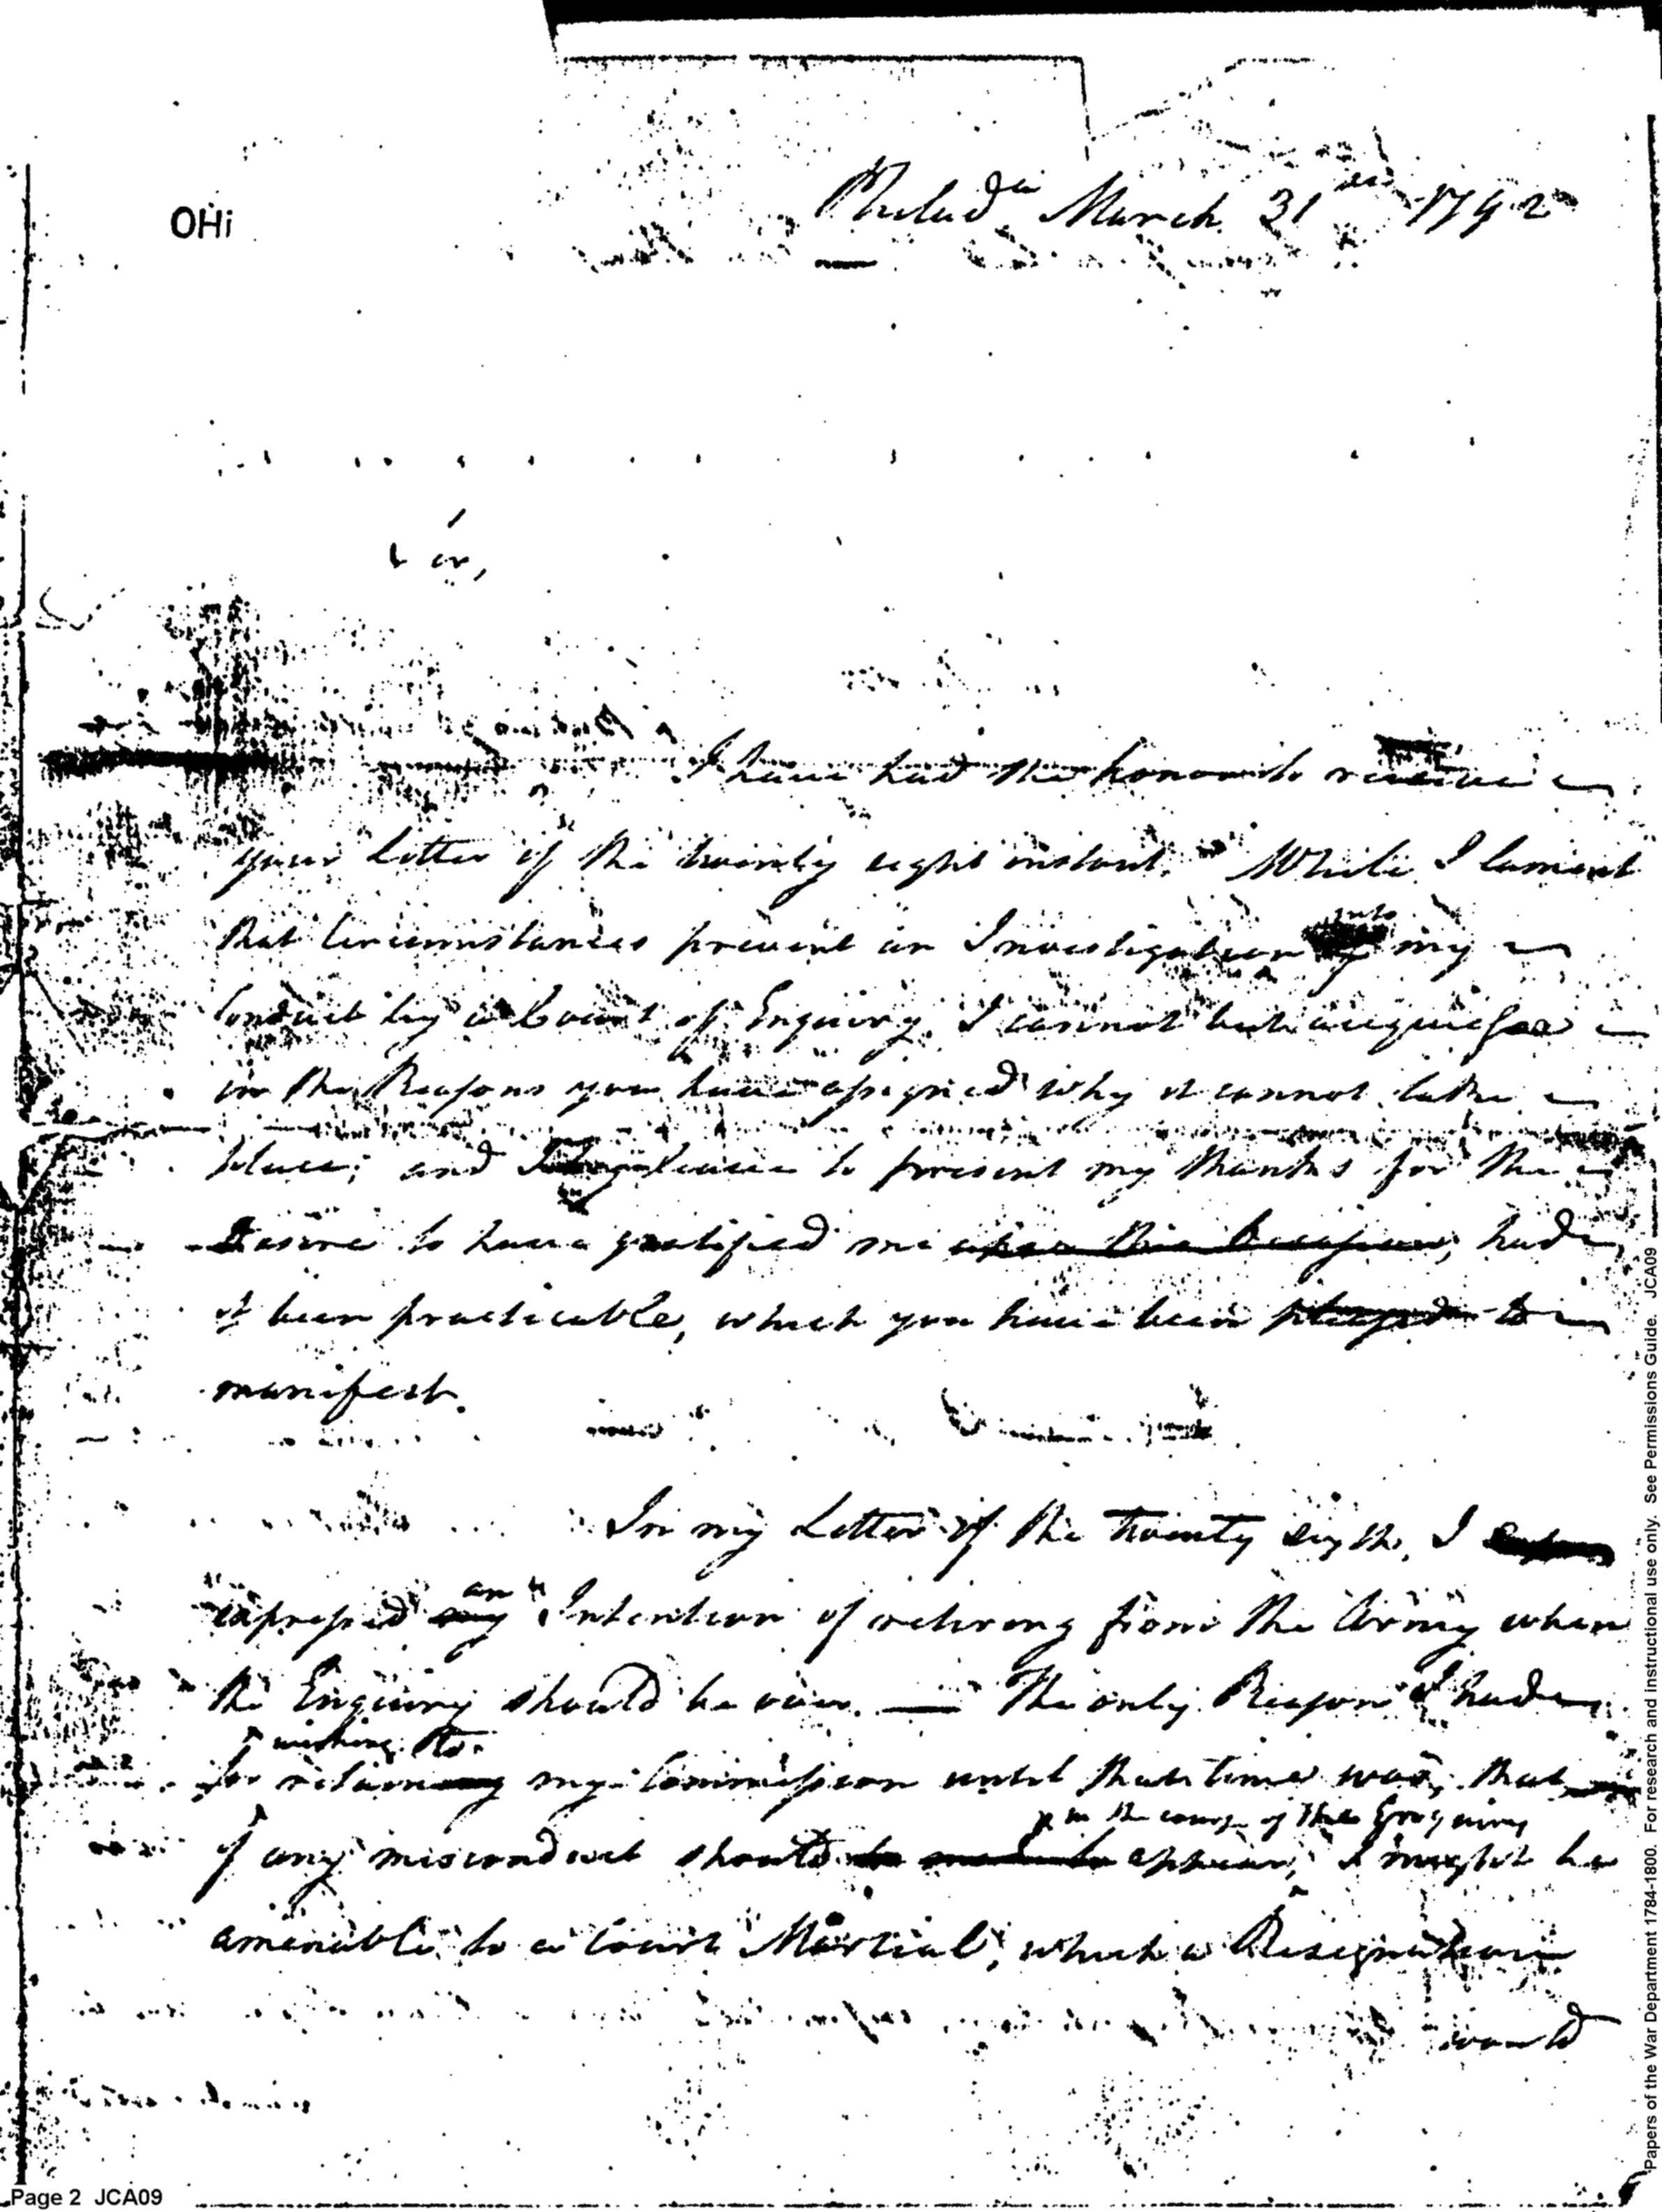 OHi
Philad.a March 31st 1792
Sir,
I have had the honor to receive
your Letter of the twenty eight instant. While I lament
that Circumstances prevent an Investigation into my
Conduct by a Court of Enquiry, I cannot but acquiesce
in the Reasons you have assigned why it cannot take
place; and I beg leave to present my thanks for the
desire to have gratified me upon this Occasion, had
it been practicable, which you have been pleased to
manifest.
In my Letter of the twenty sixth, I
an
expressed my Intention of retiring from the Army when
the Enquiry should be over. — The only Reason I had
wishing to
for retaining my Commission until that time was, that
in the course of the Enquiry
if any misconduct should appear, I might be
amenable to a Court Martial, which a Resignation
would
Page 2 JCA09
Papers of the War Department 1784-1800. For research and instructional use only. See Permissions Guide. JCA09